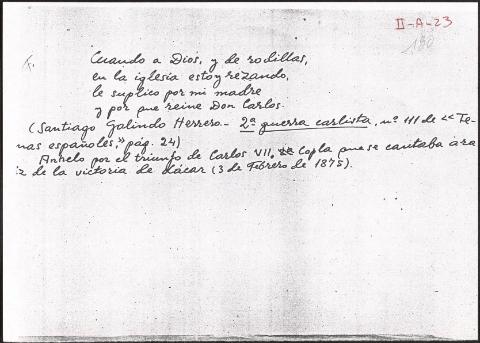 II-A-23
190
Cuando a Dios, y de rodillas,
en la iglesia estoy rezando,
le suplico por mi madre
y por que reine Don Carlos.
(Santiago Galindo Herrero.- 2ª guerra carlista, nº 111 de «Te-
mas españoles,» pág. 24)
Anhelo por el triunfo de Carlos VII. Copla que se cantaba a ra-
iz de la victoria de Lácar (3 de Febrero de 1875).